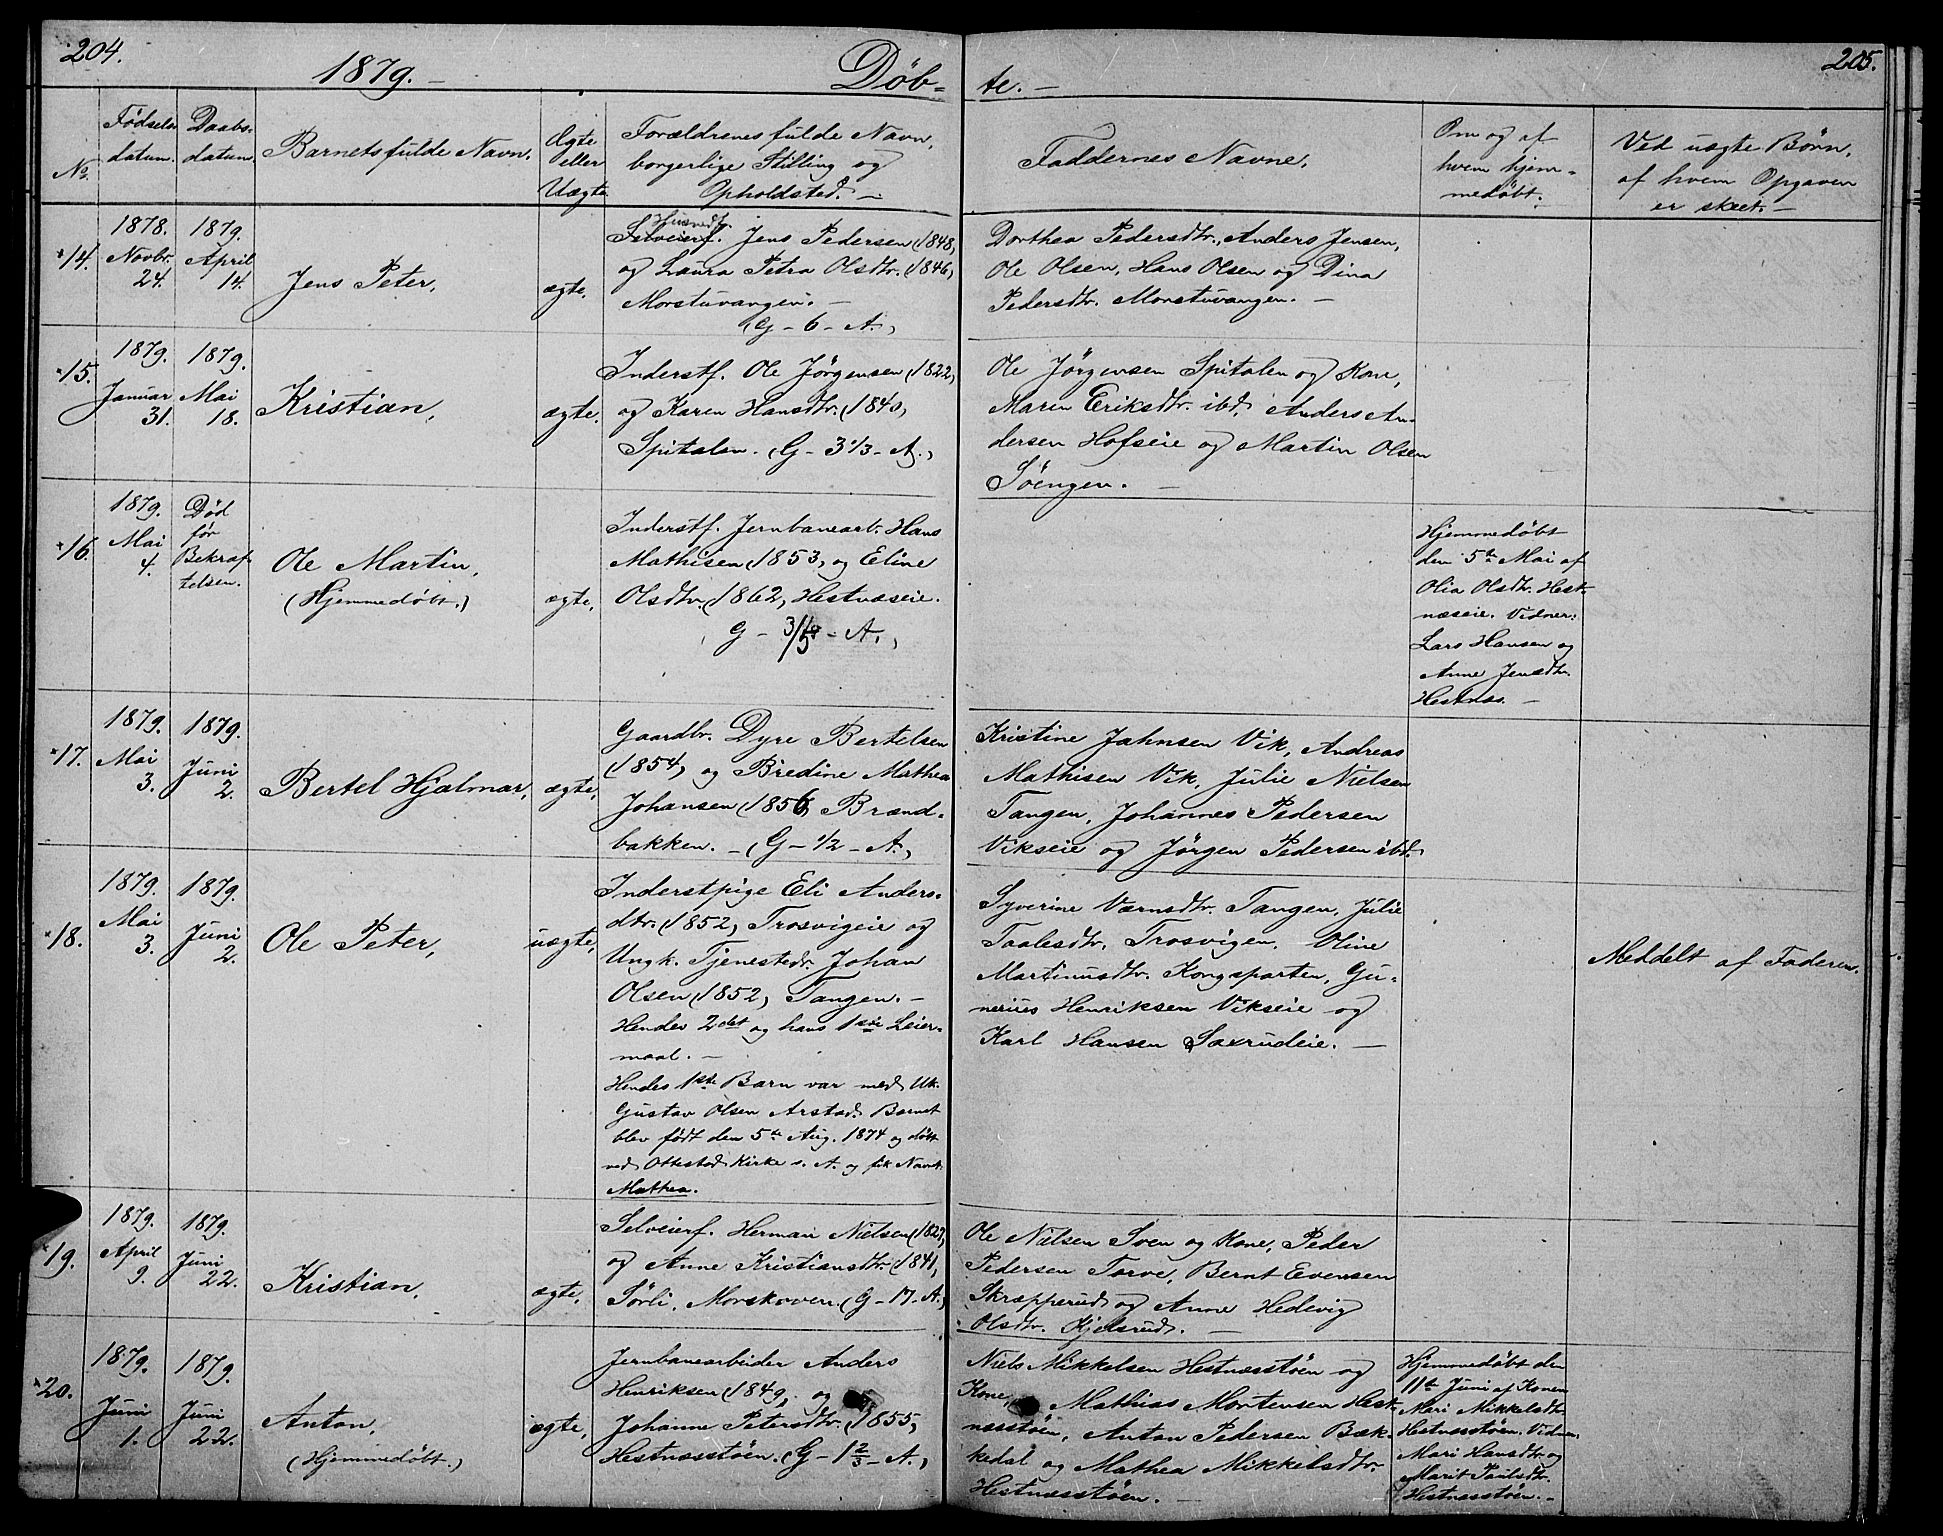 204.
1879. —
Døb-
te. —
205.
No.
Fødsels-
datum.
Daabs-
datum.
Barnets fulde Navn.
Ægte
eller
Uægte
Forældrenes fulde Navn,
borgerlige Stilling og
Opholdsted. —
Faddernes Navne.
Om og af
hvem hjem-
medøbt.
Ved uægte Børn,
af hvem Opgaven
er skeet. —
14.
1878.
Novbr.
24.
1879.
April
14.
Jens Peter,
ægte,
Selveierf. Jens Pedersen (1848)
og Laura Petra Olsdtr. (1846)
Morstuvangen. —
(G - 6 - A.)
Dorthea Pedersdtr., Anders Jensen,
Ole Olsen, Hans Olsen og Dina
Pedersdtr. Morstuvangen. —
15.
1879.
Januar
31.
1879.
Mai
18.
Kristian,
ægte.
Inderstf. Ole Jørgensen (1822)
og Karen Hansdtr. (1840)
Spitalen. (G - 3 1/3 - A.)
Ole Jørgensen Spitalen og Kone,
Maren Eriksdtr. ibd, Anders An-
dersen Hofseie og Martin Olsen
Søengen. —
16.
1879.
Mai
4.
Død
før
Bekræf-
telsen.
Ole Martin,
(Hjemmedøbt.)
ægte,
Inderstf. Jernbanearb. Hans
Mathisen (1853) og Eline
Olsdtr. (1862) Hestnæseie.
G - 3/ - A.)
Hjemmedøbt
den 5te Mai af
Olia Olsdtr. Hest-
næseie. Vidner:
Lars Hansen og
Anne Jensdtr.
Hestnæs. —
17.
1879.
Mai
3.
1879.
Juni
2.
Bertel Hjalmar,
ægte,
Gaardbr. Dyre Bertelsen
(1854) og Bredine Mathea
Johansen (1856) Brænd-
bakken. — (G - 1/2 - A.)
Kristine Jahnsen Vik, Andreas
Mathisen Vik, Julie Nielsen
Tangen, Johannes Pedersen
Vikseie og Jørgen Pedersen ibd.
18.
1879.
Mai
3.
1879.
Juni
2.
Ole Peter,
uægte,
Inderstpige Eli Anders-
dtr. (1852) Trosvigeie og
Ungk. Tjenestedr. Johan
Olsen (1852) Tangen. —
Hendes 2det og hans 1ste Leier-
maal. —
Hendes 1ste Barn var med Uk.
Gustav Olsen Arstad. Barnet
blev født den 5te Aug. 1874 og døbt
ved Ottestad Kirke s. A. og fik Navnet
Mathea.
Syverine Værnsdtr. Tangen, Julie
Taalesdtr. Trosvigen, Oline
Martinusdtr. Kongsparten, Gu-
nerius Henriksen Vikseie og
Karl Hansen Saxrudeie. —
Meddelt af Faderen.
19.
1879.
April
9.
1879.
Juni
22.
Kristian,
ægte,
Selveierf. Herman Nielsen (1827)
og Anne Kristiansdtr. (1841)
Sørli, Morskoven. (G - 17 - A.)
Ole Nielsen Sven og Kone, Peder
Pedersen Torve, Bernt Evensen
Skræpperud og Anne Hedevig
Olsdtr. Kjelsrud. —
20.
1879.
Juni
1.
1879.
Juni
22.
Anton,
(Hjemmedøbt.)
ægte,
Jernbanearbeider Anders
Henriksen (1849) og
Johanne Petersdtr. (1855)
Hestnæsstøen. (G - 1 2/3 - A.)
Niels Mikkelsen Hestnæsstøen og
Kone, Mathias Mortensen Hest-
næsstøen, Anton Pedersen Bæk-
kedal og Mathea Mikkelsdtr.
Hestnæsstøen. —
Hjemmedøbt den
11te Juni af Konen
Mari Mikkelsdtr.
Hestnæsstøen. Vidner:
Mari Hansdtr. og
Marit Paulsdtr.
Hestnæsstøen. —